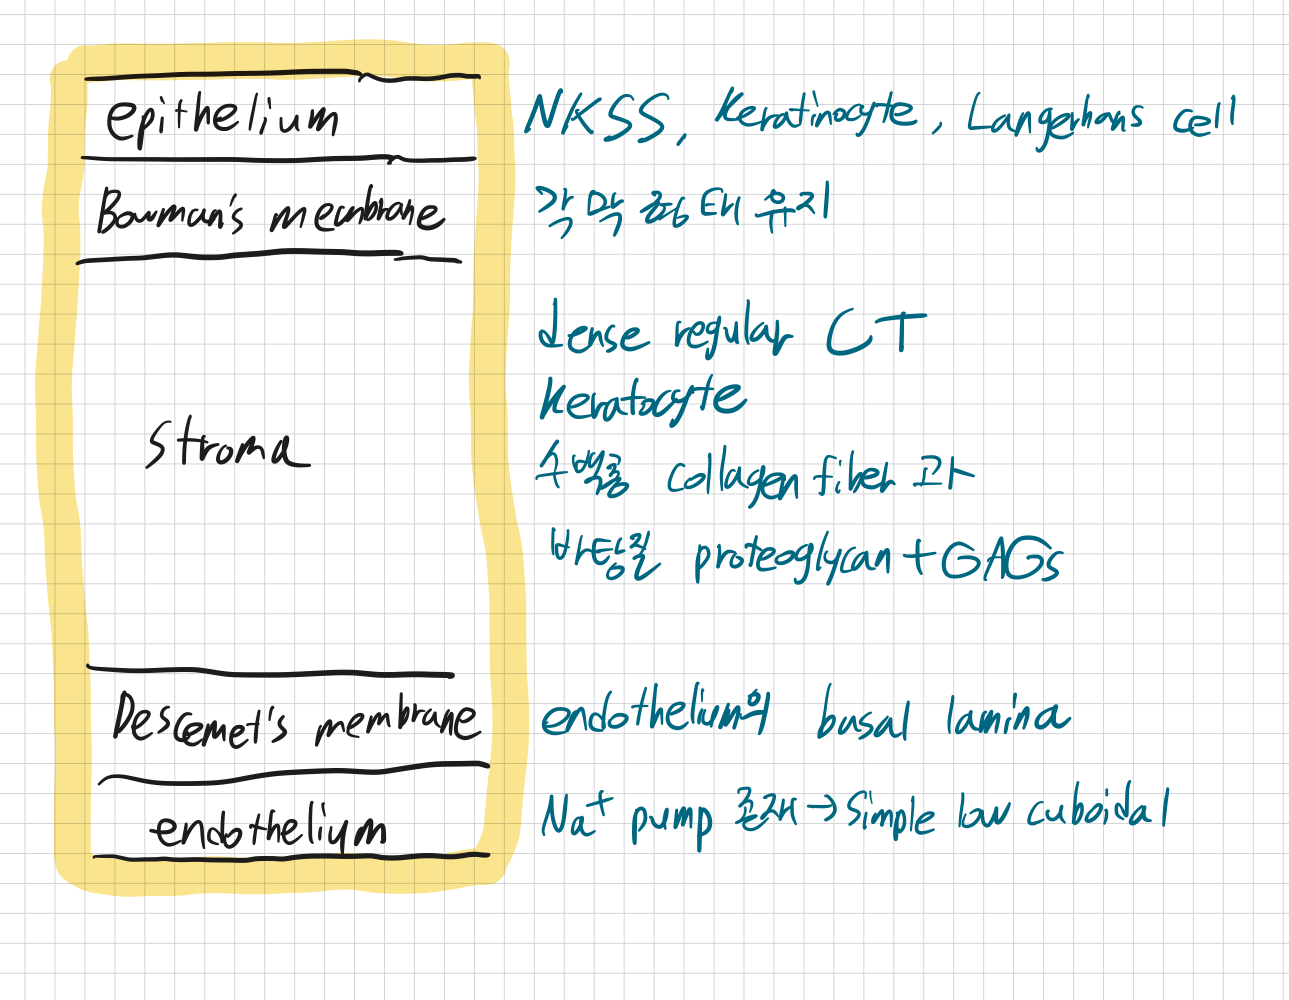 epithelium NKSS, Keratinocyte, Langerhans cell
Bowman's membrane 각막 형태 유지
dense regular CT
Keratocyte
stroma 수백층 collagen fiber 과
바탕질 proteoglycan + GAGs
Descemet's membrane endothelium의 basal lamina
endothelium Na⁺ pump 존재 → Simple low cuboidal